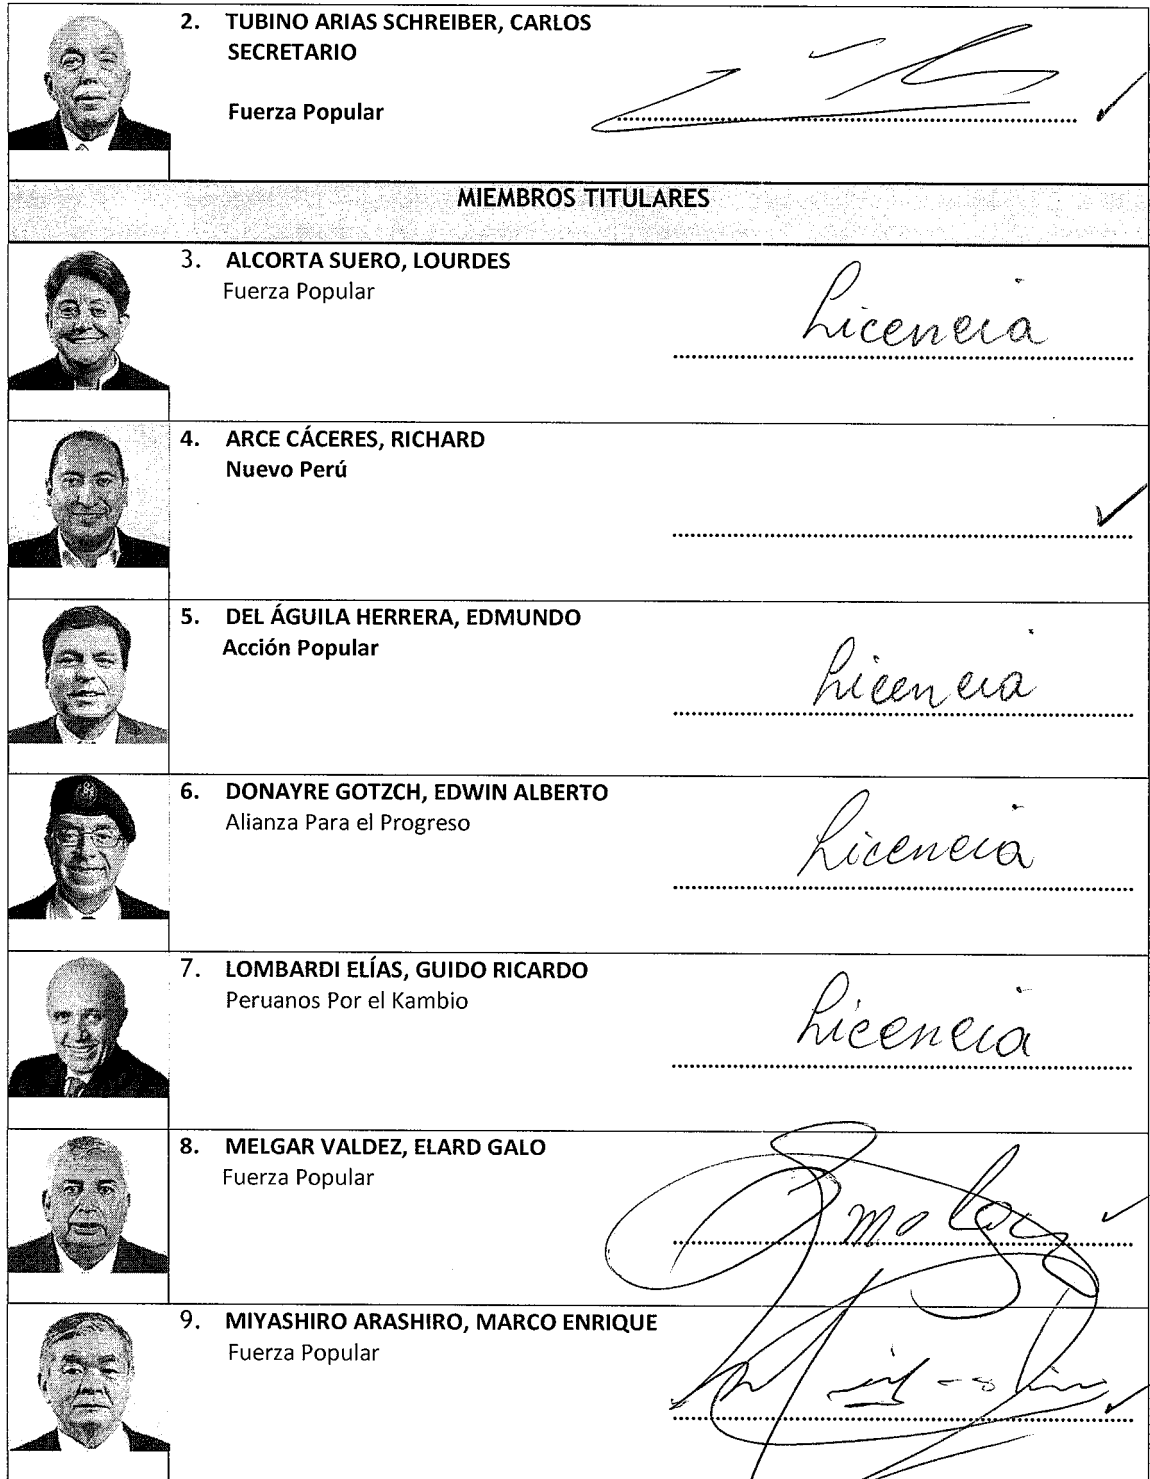 2. TUBINO ARIAS SCHREIBER, CARLOS
SECRETARIO
Fuerza Popular
MIEMBROS TITULARES
3. ALCORTA SUERO, LOURDES
Fuerza Popular
Licencia
4. ARCE CÁCERES, RICHARD
Nuevo Perú
5. DEL ÁGUILA HERRERA, EDMUNDO
Acción Popular
Licencia
6. DONAYRE GOTZCH, EDWIN ALBERTO
Alianza Para el Progreso
Licencia
7. LOMBARDI ELÍAS, GUIDO RICARDO
Peruanos Por el Kambio
Licencia
8. MELGAR VALDEZ, ELARD GALO
Fuerza Popular
9. MIYASHIRO ARASHIRO, MARCO ENRIQUE
Fuerza Popular